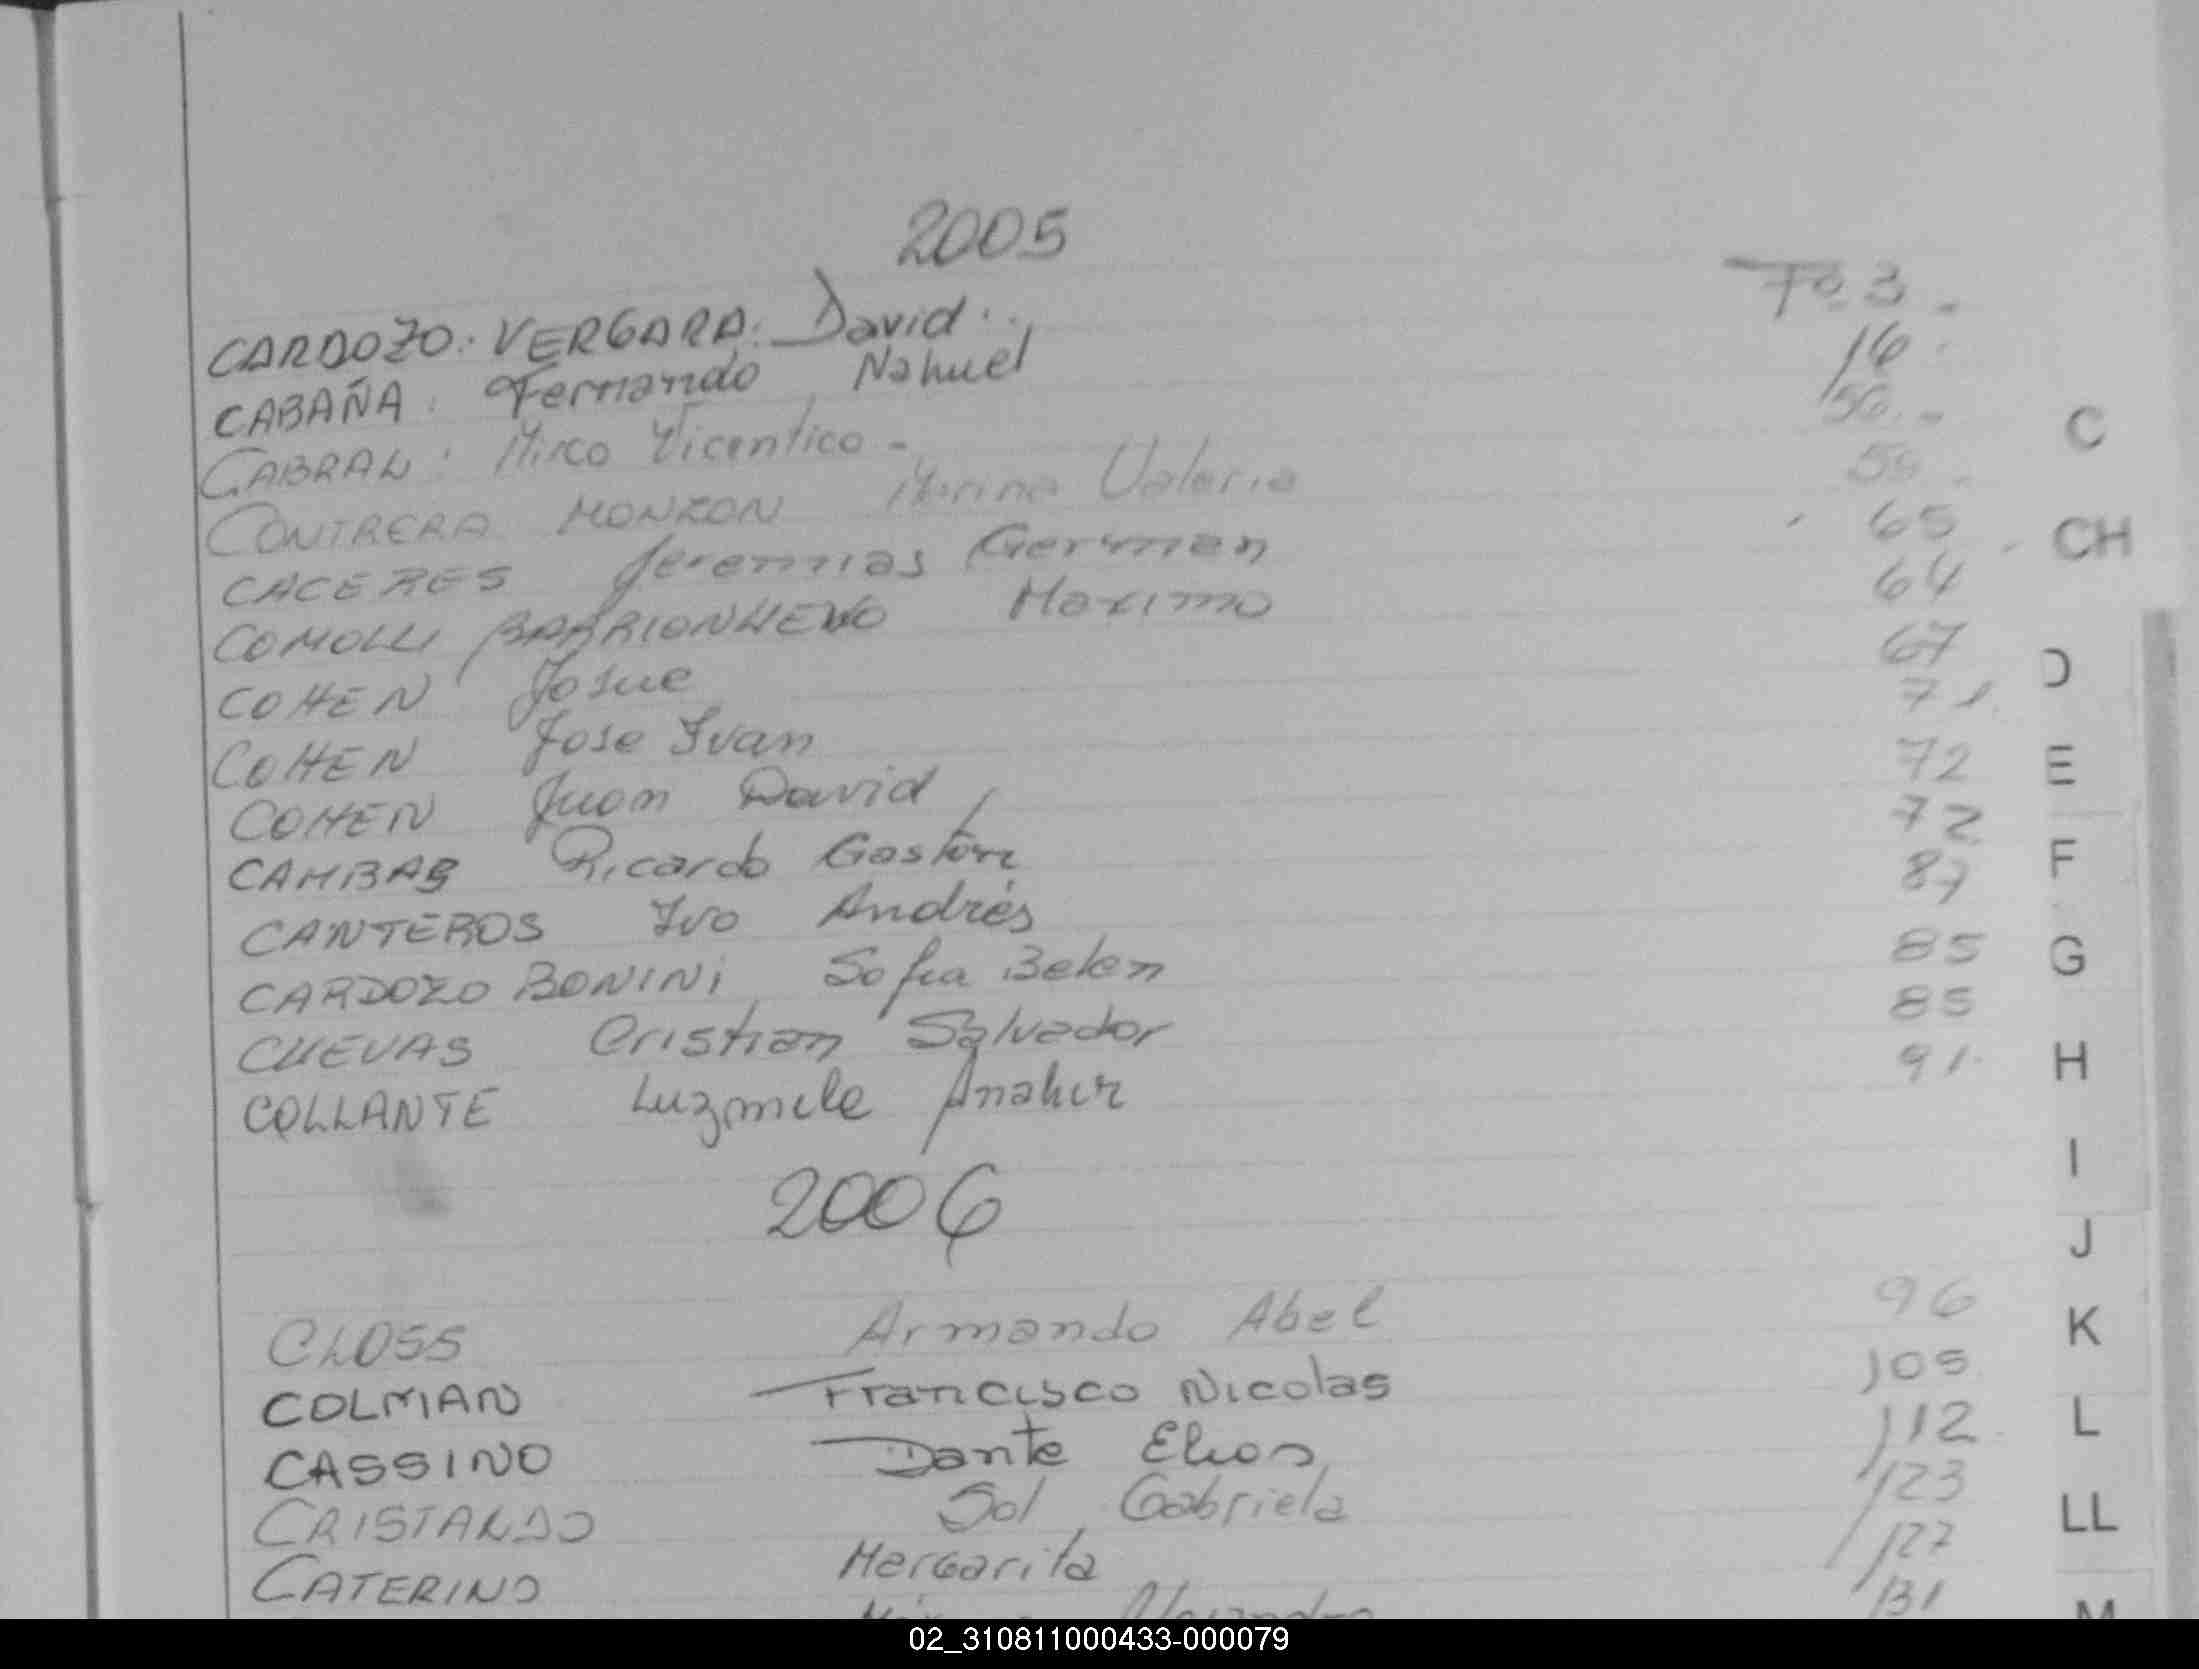 2005
CARDOZO. VERGARA. David.. Fº 3.
CABAÑA. Fernando Nahuel 16.
CABRAL: Mirco Vicentico - 50.-
CONTRERA MONZON Marina Valeria
CACERES Jeremias German 65
COMOLLI BARRIONUEVO Maximo 64
COHEN Josue 67
COHEN Jose Ivan 71
COHEN Juan David 72
CAMBAS Ricardo Gastón 72
CANTEROS Ivo Andrés 87
CARDOZO BONINI Sofia Belen 85
CUEVAS Cristian Salvador 85
COLLANTE Luzmila Anahir 91.
2006
CLOSS Armando Abel 96
COLMAN Francisco Nicolas 105
CASSINO Dante Elios 112
CRISTALDO Sol Gabriela 123
CATERINO Margarita 127
131
C
CH
D
E
F
G
H
I
J
K
L
LL
M
02_310811000433-000079